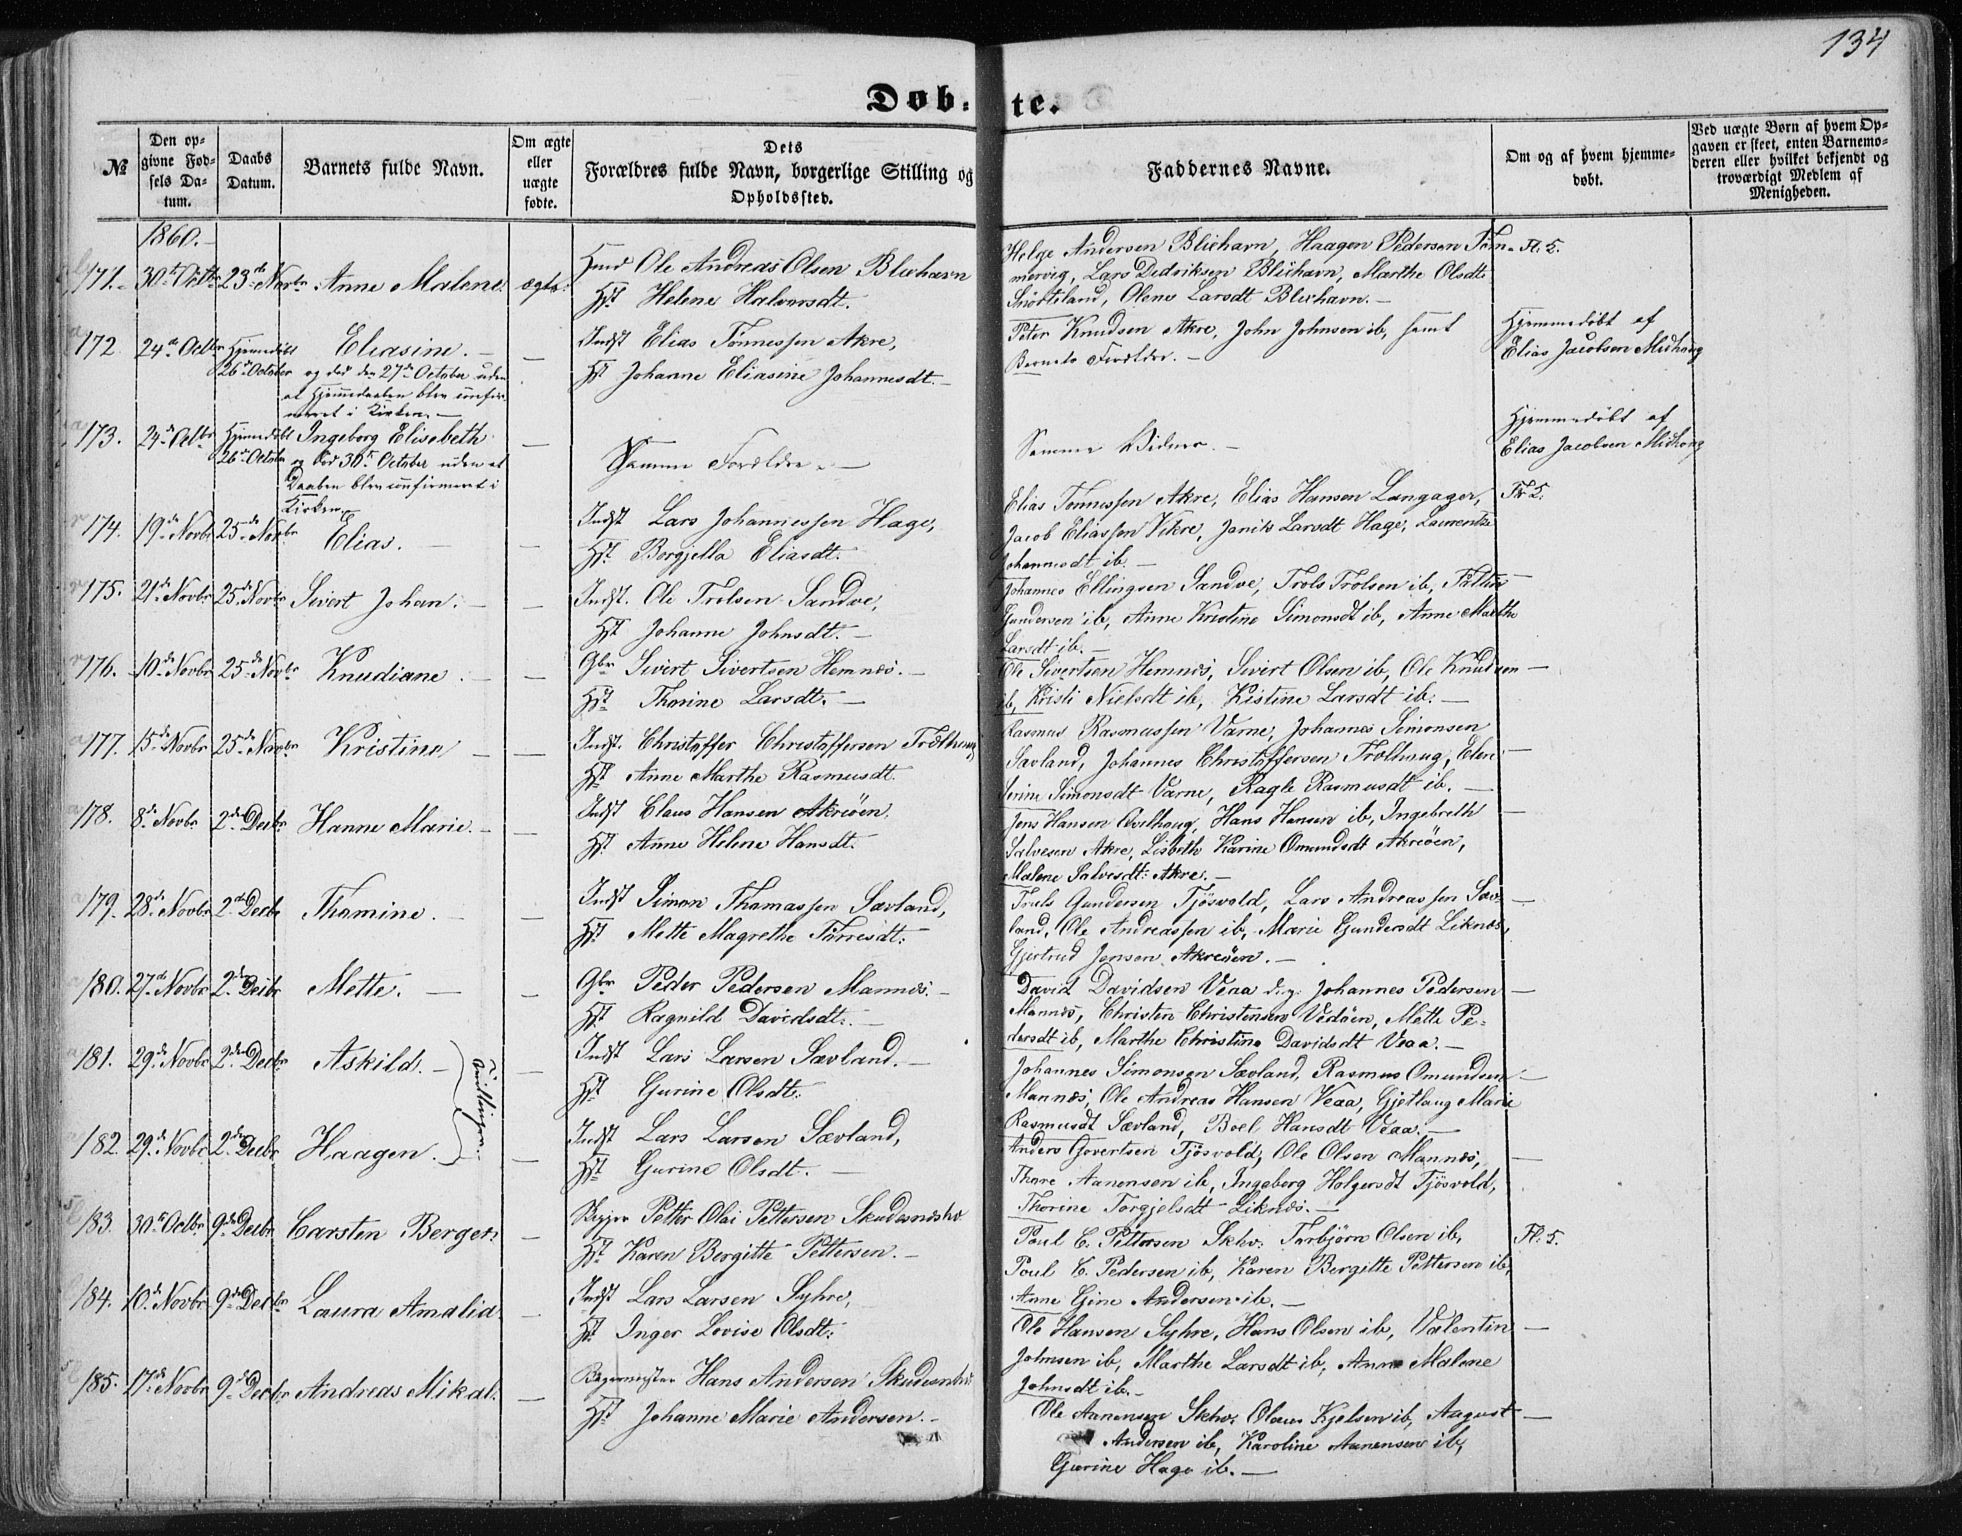 134
Døb-te.
№
Den op-
givne Fød-
sels Da-
tum.
Daabs
Datum.
Barnets fulde Navn.
Om ægte
eller
uægte
fødte.
Dets
Forældres fulde Navn, borgerlige Stilling og
Opholdssted.
Faddernes Navne.
Om og af hvem hjemme-
døbt.
Ved uægte Børn af hvem Op-
gaven er skeet, enten Barnemo-
deren eller hvilket bekjendt og
troværdigt Medlem af
Menigheden.
1860.-
171. 30te Octbr 23de Novbr Anne Malene. ægte.
Ole Andreas Olsen Blixhavn
Hst Helene Halvorsdt.
Helge Andersen Blixhavn, Haagen Pedersen Tøm-
mervig, Lars Dedriksen Blixhavn, Marthe Olsdt
Olene Larsdt Blixhavn.-
Fl. 5.
172. 24de Octbr Hjemmedøbt
26de October
Eliasine.-
og død den 27de October uden
at Hjemmedaaben blev confir-
meret i Kirken.-
Indst Elias Tønnessen Akre,
Hst Johanne Eliasine Johannesdt.-
Peter Knudsen Akre, John Johnsen ib, samt
Barnets Forældre.-
Hjemmedøbt af
Elias Jacobsen Midhaug
173. 24de Octbr Hjemmedøbt
26de October
Ingeborg Elisebeth
og død 30te October uden at
Daaben blev confirmeret i
Kirken.-
Samme Forældre.-
Samme Vidner.-
Hjemmedøbt af
Elias Jacobsen Midhaug
174. 19de Novbr 25de Novbr Elias.-
Indst Lars Johannessen Hage,
Hst. Borgjella Eliasdt.
Elias Tønnessen Akre, Elias Hansen Langager,
Jacob Eliassen Vikre, Janike Larsdt Hage, Laurentze
Johannesdt ib.-
Fl 5.
175. 21de Novbr 25de Novbr Sivert Johan.-
Indst. Ole Trolsen Sandve,
Hst Johanne Johnsdt.-
Johannes Ellingsen Sandve, Trols Trolsen ib,
Gundersen ib, Anne Kristine Simonsdt ib, Anne Marthe
Larsdt ib.-
176. 10de Novbr 25de Novbr Knudiane.-
Gbr Sivert Sivertsen Hemnes.-
Hst Thorine Larsdt.-
Ole Sivertsen Hemnes, Sivert Olsen ib, Ole Knudsen
ib, Kristi Nielsdt ib, Kistine Larsdt ib.-
177. 15de Novbr 25de Novbr Kristine
Indst. Christoffer Christoffersen Trælhaug
Hst Anne Marthe Rasmusdt.
Rasmus Rasmussen Varne, Johannes Simonsen
Savland, Johannes Christoffersen Trælhaug, Elen
Serine Simonsdt Varne, Ragle Rasmusdt ib.-
178. 8de Novbr 2den Decbr Hanne Marie.-
Indst Claus Hansen Akreøen.
Hst Anne Helene Hansdt.
Jens Hansen Østhaug, Hans Hansen ib, Ingebreth
Salvesen Akre, Lisbeth Karine Omundsdt Akreøen,
Malene Salvesdt. Akre.-
179. 28de Novbr 2den Decbr Thomine.-
Indst Simon Thomassen Sævland,
Hst. Mette Magrethe Tørresdt.
Truls Gundersen Tjøsvold, Lars Andreassen Sæv-
land, Ole Andreassen ib, Marie Gundersdt Liknes,
Gjertrud Jensen Akreøen.-
180. 27de Novbr 2den Decbr Mette.-
Gbr Peder Pedersen Mannes.-
Hst Ragnild Davidsdt.-
David Davidsen Veaa Johannes Pedersen
Mannes, Christen Christensen Vedøen, Mette Pe-
dersdt ib, Marthe Christine Davidsdt Veaa.-
181. 29de Novbr 2den Decbr Askild.-
Tvillinger.
Indst Lars Larsen Sævland.-
Hst Gurine Olsdt.
Johannes Simonsen Sævland, Rasmus Omundsen
Mannes, Ole Andreas Hansen Veaa, Gjetlaug Marie
Rasmusdt Sævland, Boel Hansdt Veaa.-
182. 29de Novbr 2den Decbr Haagen.
Indst Lars Larsen Sævland,
Hst Gurine Olsdt.-
Anders Govertsen Tjøsvold, Ole Olsen Mannes,
Thore Aanensen ib, Ingeborg Holgersdt Tjøsvold,
Thorine Torgjelsdt Liknes.-
183. 30te Octbr 9de Decbr Carsten Berget.
Petter Olai Pettersen Skudesneshv.
Hst Karen Bergitte Pettersen.-
Poul C. Pettersen Skhv. Torbjørn Olsen ib,
Poul C. Pedersen ib, Karen Bergitte Pettersen ib,
Anne Gine Andersen ib.-
Fl. 5.
184. 10de Novbr 9de Decbr Laura Amalia.
Indst Lars Larsen Syhre,
Hst Inger Lovise Olsdt.
Ole Hansen Syhre, Hans Olsen ib, Valentin
Johnsen ib, Marthe Larsdt ib, Anne Malene
Johnsdt ib.-
185. 17de Novbr 9de Decbr Andreas Mikal.
Bagermester Hans Andersen Skudesnhv.
Hst Johanne Marie Andersen.-
Ole Aanensen Skhv. Olaus Kjelsen ib, August
Andersen ib, Karoline Aanensen ib,
Gurine Hage ib.-